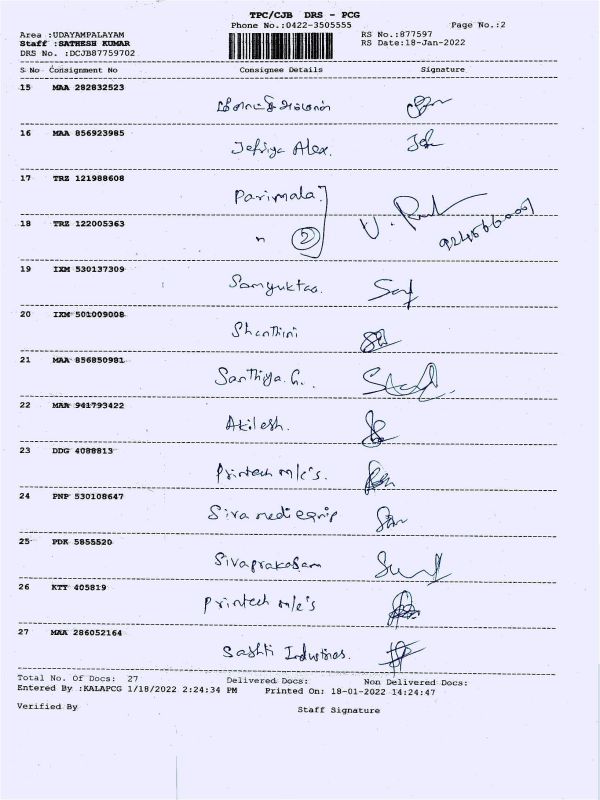 TPC/CJB DRS - PCG
Phone No.:0422-3505555 Page No.:2
Area :UDAYAMPALAYAM RS No.:877597
Staff :SATHESH KUMAR RS Date:18-Jan-2022
DRS No. :DCJB87759702
S No Consignment No Consignee Details Signature
15 MAA 282832523
16 MAA 856923985 Jefriya Alex.
17 TRZ 121988608 Parimala
18 TRZ 122005363 " 2
19 IXM 530137309 Samyuktaa.
20 IXM 501009008 Shanthini
21 MAA 856850981 Santhiya.G.
22 MAA 941793422 Akilesh.
23 DDG 4088813 Printech m/c's.
24 PNP 530108647 Siva medi equip
25 PDK 5855520 Sivaprakasam
26 KTT 405819 Printech m/c's
27 MAA 286052164 Sashti Industries.
Total No. Of Docs: 27 Delivered Docs: Non Delivered Docs:
Entered By :KALAPCG 1/18/2022 2:24:34 PM Printed On: 18-01-2022 14:24:47
Verified By Staff Signature